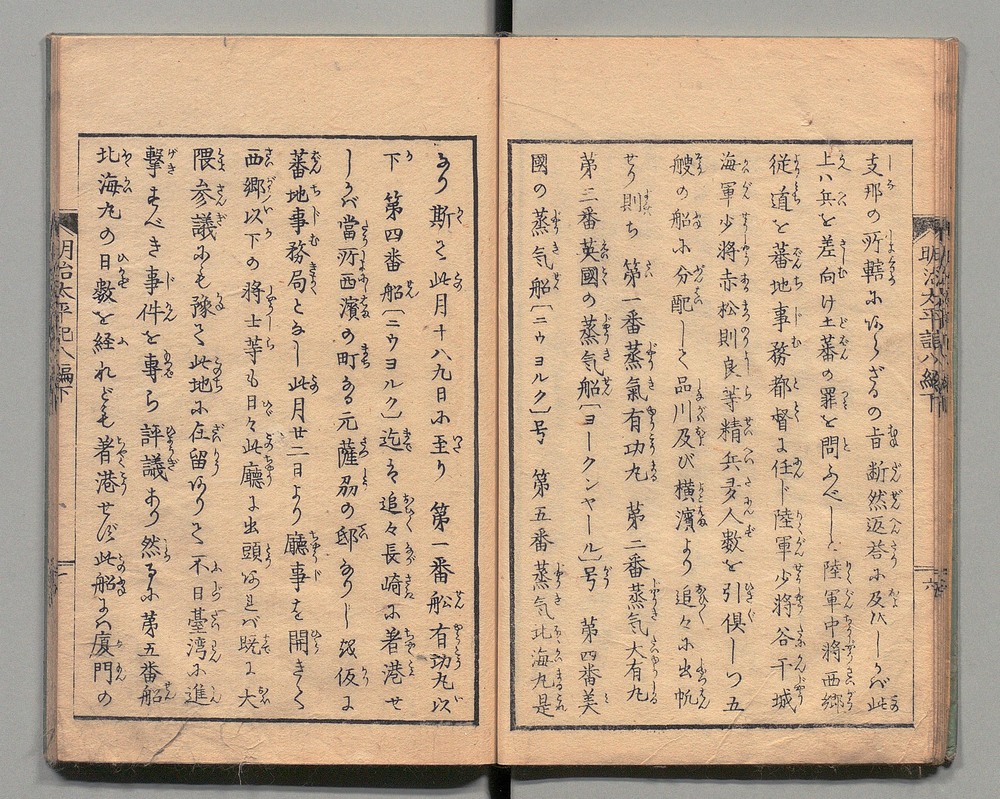 支那の所轄にあらざるの旨断然返答に及びしかば此
上ハ兵を差向け土蕃の罪を問ふべしと陸軍中将西郷
従道を蕃地事務都督に任じ陸軍少将谷干城
海軍少将赤松則良等精兵多人数を引倶しつ五
艘の船に分配して品川及び横濱より追々に出帆
せり則ち 第一番蒸氣有功丸 第二番蒸気大有丸
第三番英國の蒸気船〔ヨークシヤール〕号 第四番美
國の蒸気船〔ニウヨルク〕号 第五番蒸気北海丸是
なり斯て此月十八九日に至り 第一番舩有功丸以
下 第四番船〔ニウヨルク〕迄は追々長崎に着港せ
しかば當所西濱の町なる元薩刕の邸なりしを仮に
蕃地事務局となし此月廿二日より廳事を開きて
西郷以下の将士等も日々此廳に出頭あれバ既に大
隈参議にも豫て此地に在留ありて不日臺湾に進
撃すべき事件を専ら評議あり然るに第五番船
北海丸の日數を経れども着港せず此船よハ廈門の
明治太平記八編下
明治太平記八編下
六